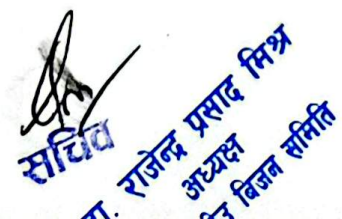 सचिव
राजेन्द्र प्रसाद मिश्र
अध्यक्ष
बिजन समिति